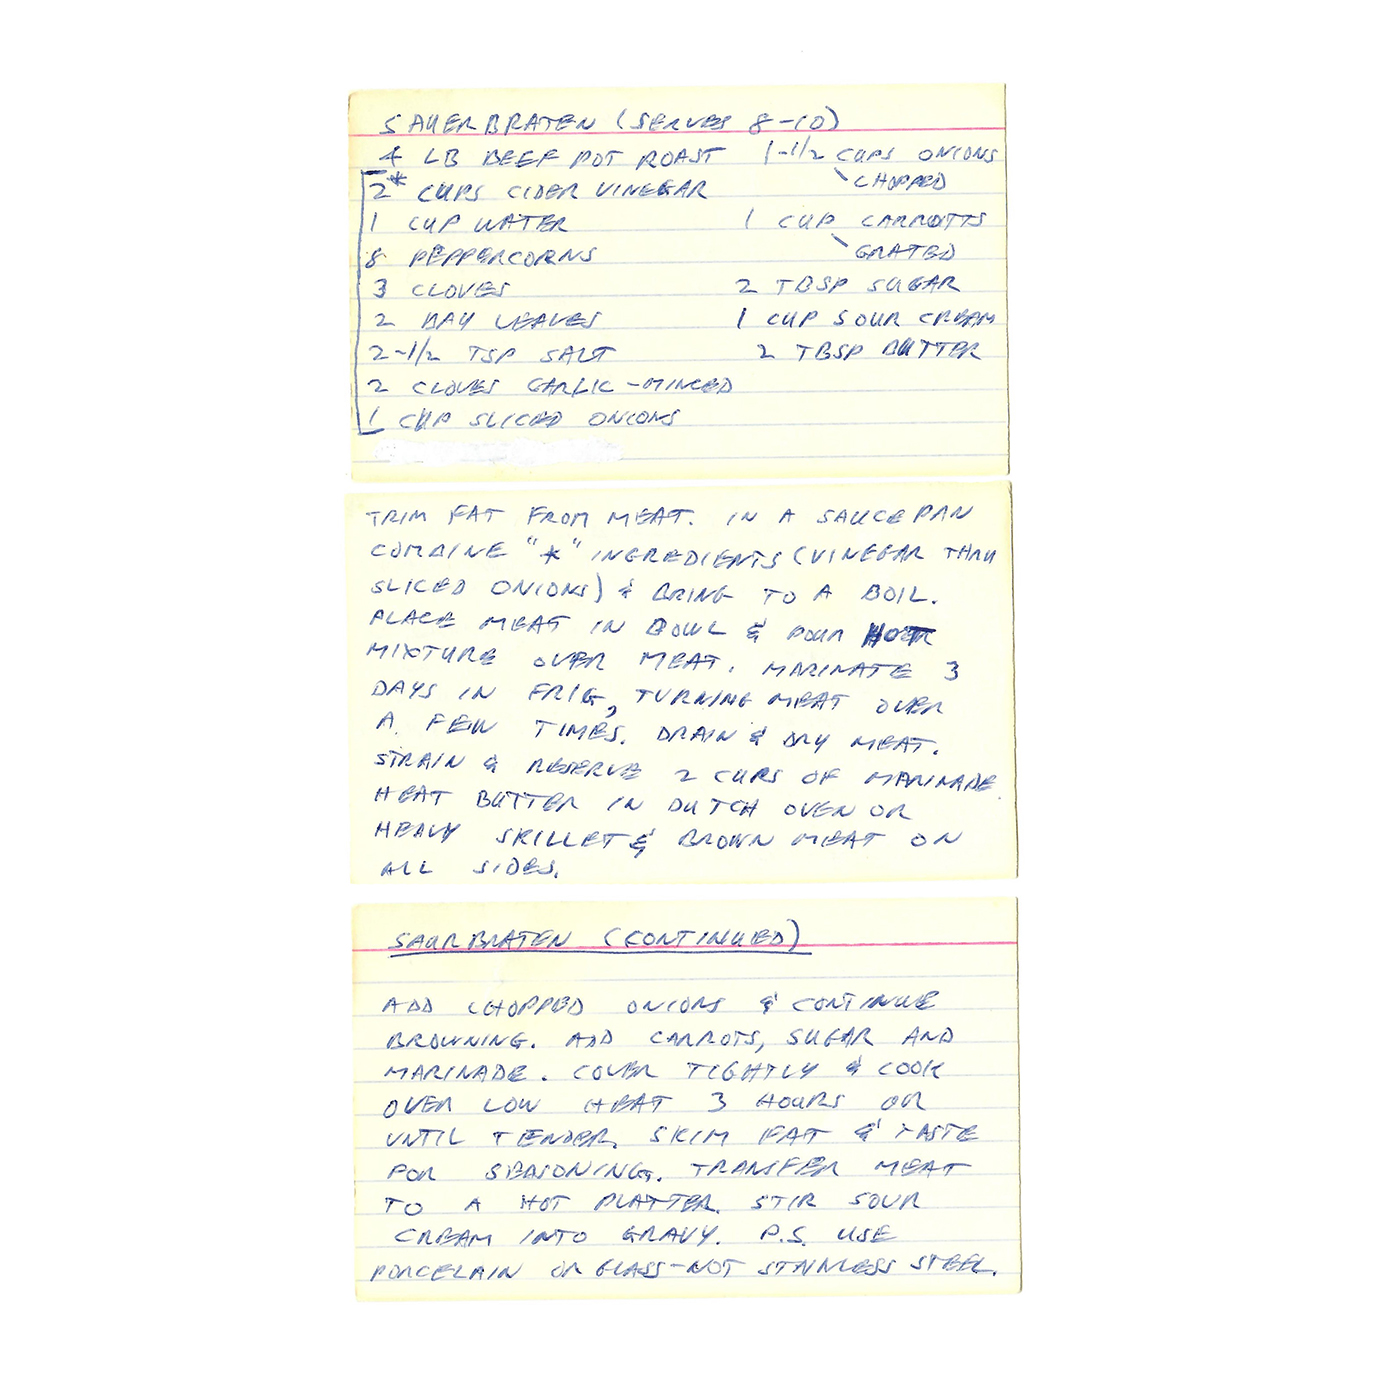 SAUERBRATEN (SERVES 8-10)
4 LB BEEF POT ROAST
2* CUPS CIDER VINEGAR
1 CUP WATER
8 PEPPERCORNS
3 CLOVES
2 BAY LEAVES
2-1/2 TSP SALT
2 CLOVES GARLIC-MINCED
1 CUP SLICED ONIONS
1-1/2 CUPS ONIONS
CHOPPED
1 CUP CARROTTS
GRATED
2 TBSP SUGAR
1 CUP SOUR CREAM
2 TBSP BUTTER
TRIM FAT FROM MEAT. IN A SAUCEPAN
COMBINE "*" INGREDIENTS (VINEGAR THRU
SLICED ONIONS) & BRING TO A BOIL.
PLACE MEAT IN BOWL & POUR HOT
MIXTURE OVER MEAT. MARINATE 3
DAYS IN FRIG, TURNING MEAT OVER
A FEW TIMES. DRAIN & DRY MEAT.
STRAIN & RESERVE 2 CUPS OF MARINADE.
HEAT BUTTER IN DUTCH OVEN OR
HEAVY SKILLET & BROWN MEAT ON
ALL SIDES.
SAURBRATEN (CONTINUED)
ADD CHOPPED ONIONS & CONTINUE
BROWNING. ADD CARROTS, SUGAR AND
MARINADE. COVER TIGHTLY & COOK
OVER LOW HEAT 3 HOURS OR
UNTIL TENDER. SKIM FAT & TASTE
FOR SEASONING. TRANSFER MEAT
TO A HOT PLATTER. STIR SOUR
CREAM INTO GRAVY. P.S. USE
PORCELAIN OR GLASS-NOT STAINLESS STEEL.